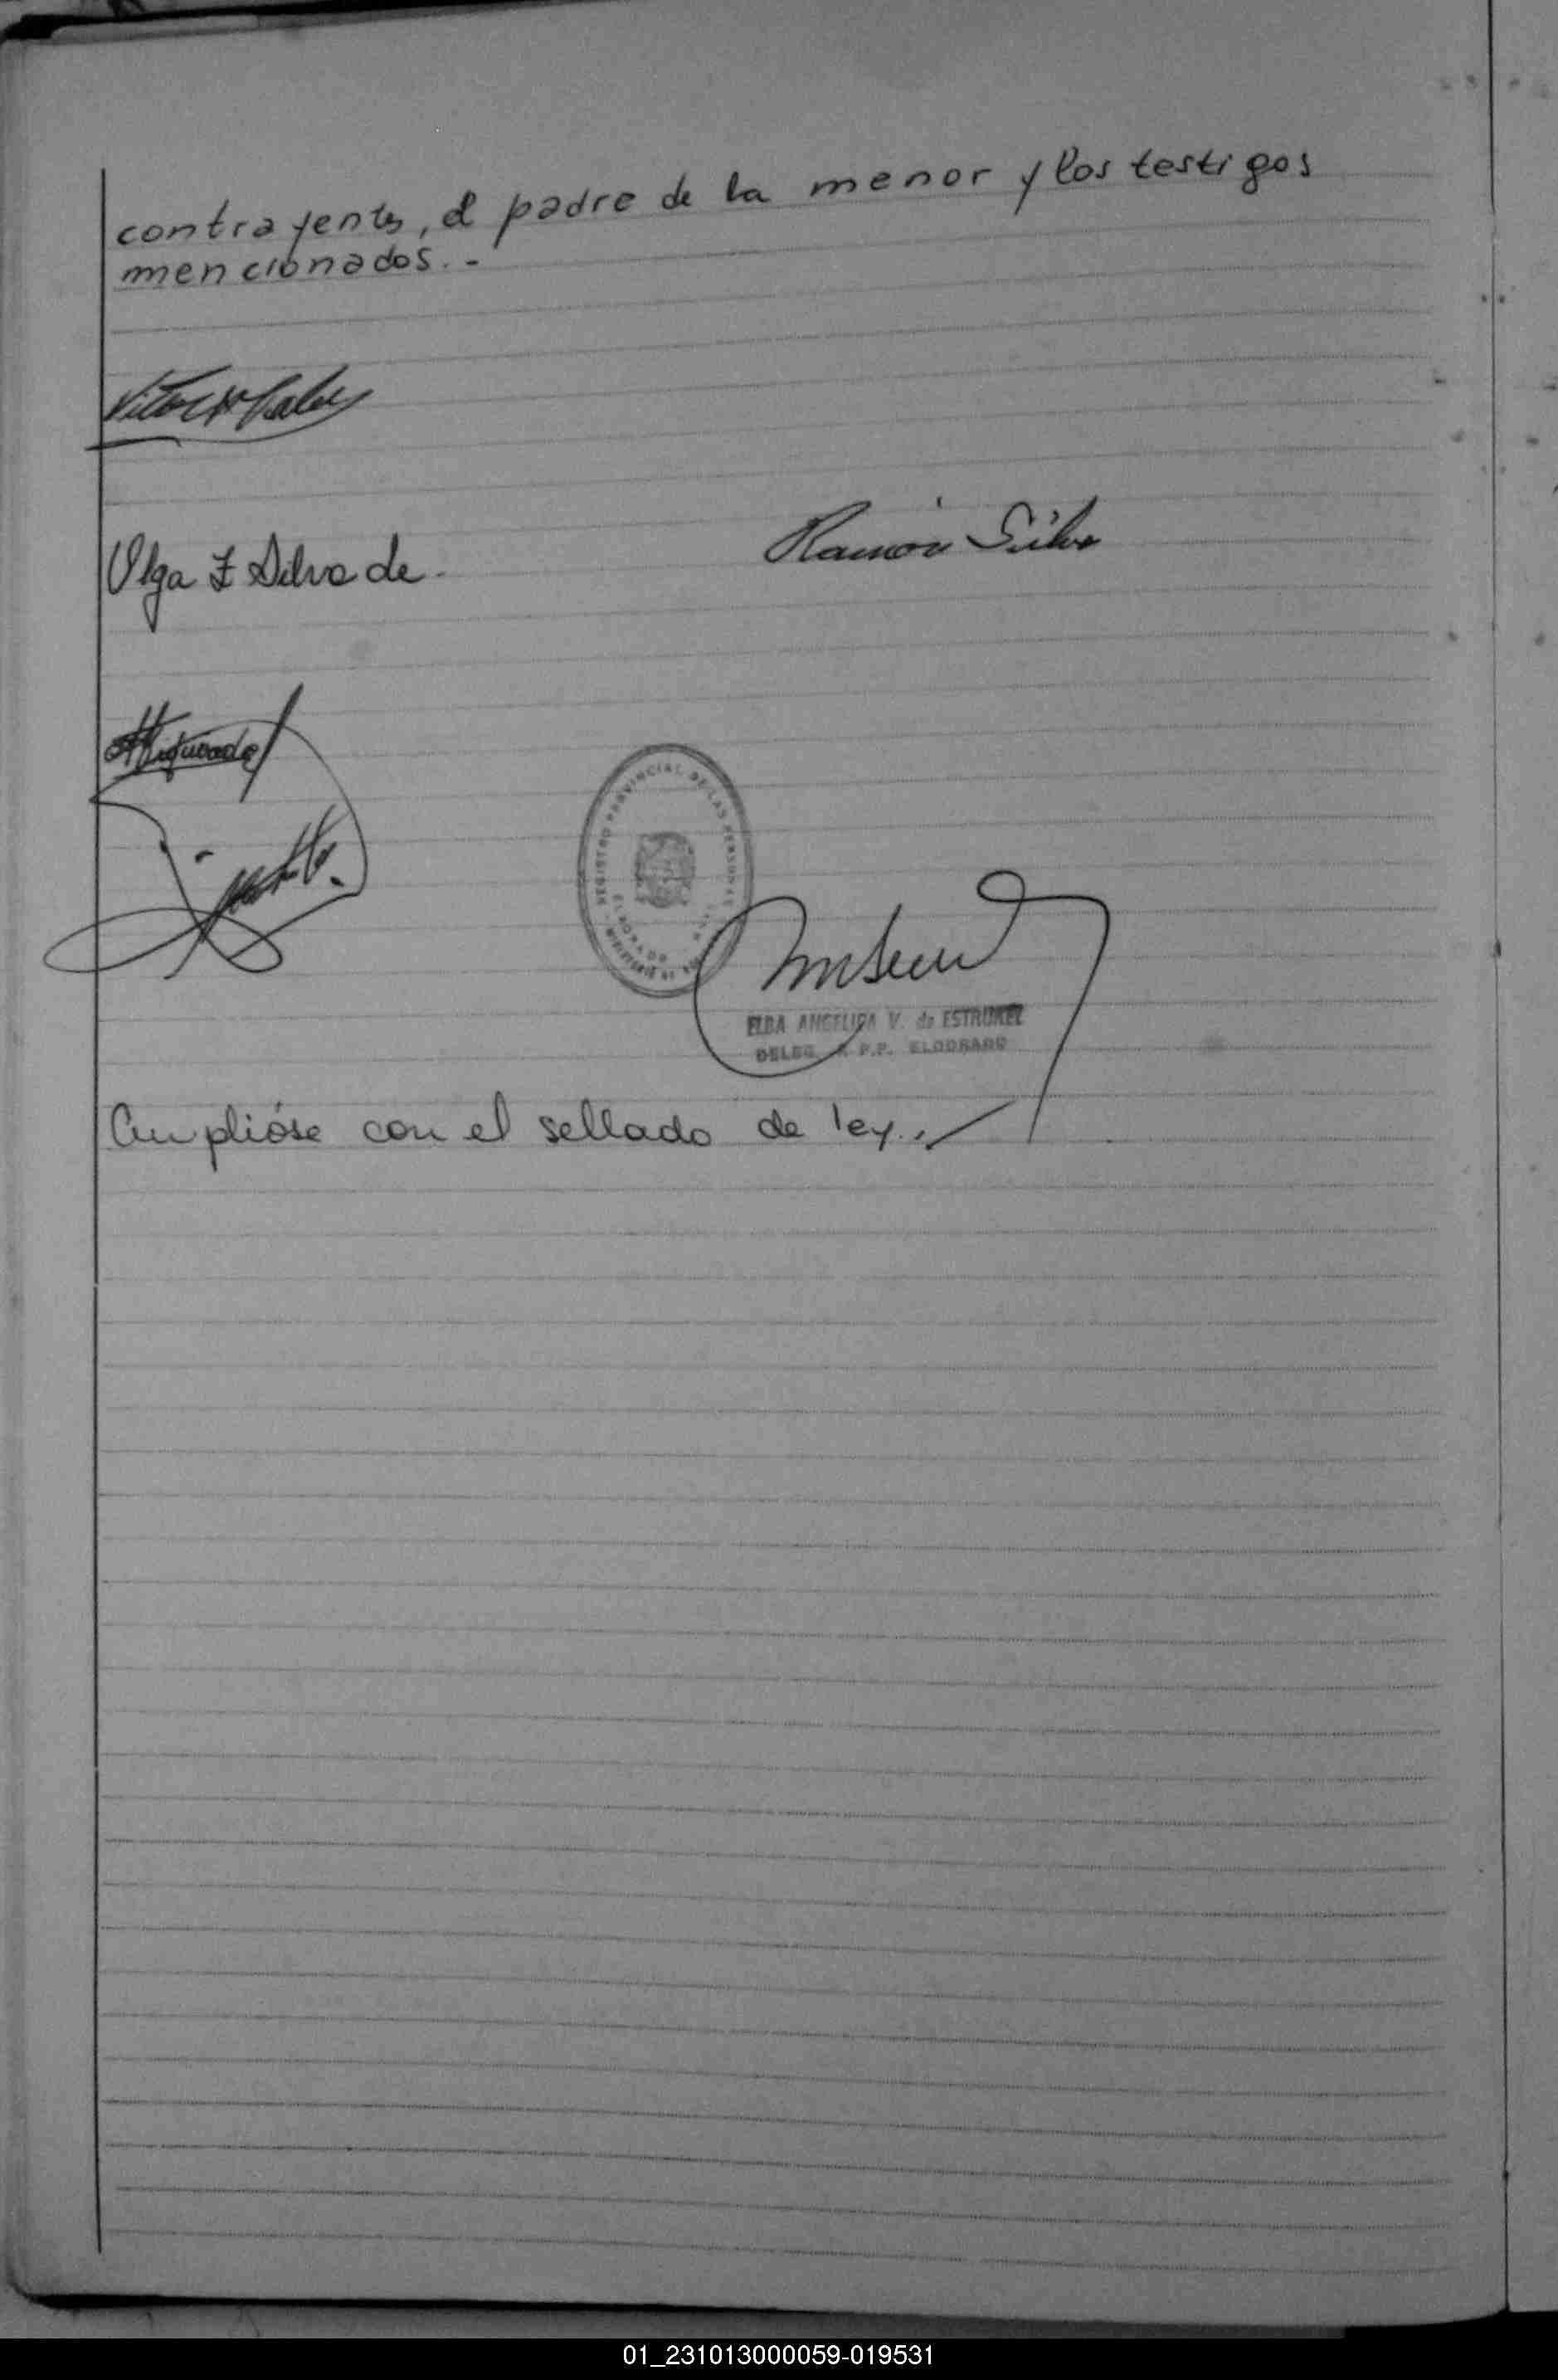 contrayentes, el padre de la menor y los testigos
mencionados. -
Olga F Silva de.
Ramón Silva
REGISTRO PROVINCIAL DE LAS PERSONAS
ELDORADO
MINISTERIO DE
ELBA ANGELICA V. de ESTRUKEL
DELEG. R P.P. ELDORADO
Cumplióse con el sellado de ley.
01_231013000059-019531